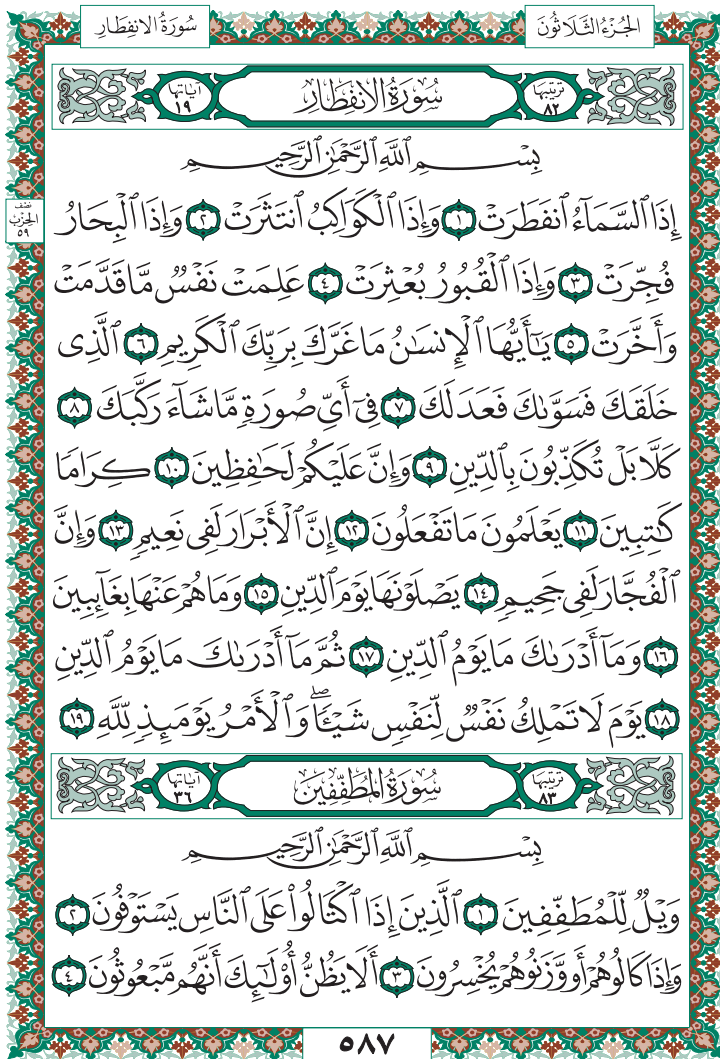 الجُزْءُ الثَّلَاثُونَ
سُورَةُ الانفِطَارِ
ترتيبها
٨٢
سُورَةُ الانفِطَارِ
آياتها
١٩
بِسْمِ ٱللَّهِ ٱلرَّحْمَٰنِ ٱلرَّحِيمِ
إِذَا ٱلسَّمَآءُ ٱنفَطَرَتْ ١ وَإِذَا ٱلْكَوَاكِبُ ٱنتَثَرَتْ ٢ وَإِذَا ٱلْبِحَارُ
نصف
الحزب
٥٩
فُجِّرَتْ ٣ وَإِذَا ٱلْقُبُورُ بُعْثِرَتْ ٤ عَلِمَتْ نَفْسٌ مَّا قَدَّمَتْ
وَأَخَّرَتْ ٥ يَٰٓأَيُّهَا ٱلْإِنسَٰنُ مَا غَرَّكَ بِرَبِّكَ ٱلْكَرِيمِ ٦ ٱلَّذِى
خَلَقَكَ فَسَوَّىٰكَ فَعَدَلَكَ ٧ فِىٓ أَىِّ صُورَةٍ مَّا شَآءَ رَكَّبَكَ ٨
كَلَّا بَلْ تُكَذِّبُونَ بِٱلدِّينِ ٩ وَإِنَّ عَلَيْكُمْ لَحَٰفِظِينَ ١٠ كِرَامًا
كَٰتِبِينَ ١١ يَعْلَمُونَ مَا تَفْعَلُونَ ١٢ إِنَّ ٱلْأَبْرَارَ لَفِى نَعِيمٍ ١٣ وَإِنَّ
ٱلْفُجَّارَ لَفِى جَحِيمٍ ١٤ يَصْلَوْنَهَا يَوْمَ ٱلدِّينِ ١٥ وَمَا هُمْ عَنْهَا بِغَآئِبِينَ
١٦ وَمَآ أَدْرَىٰكَ مَا يَوْمُ ٱلدِّينِ ١٧ ثُمَّ مَآ أَدْرَىٰكَ مَا يَوْمُ ٱلدِّينِ
١٨ يَوْمَ لَا تَمْلِكُ نَفْسٌ لِّنَفْسٍ شَيْـًٔا ۖ وَٱلْأَمْرُ يَوْمَئِذٍ لِّلَّهِ ١٩
ترتيبها
٨٣
سُورَةُ المُطَفِّفِينَ
آياتها
٣٦
بِسْمِ ٱللَّهِ ٱلرَّحْمَٰنِ ٱلرَّحِيمِ
وَيْلٌ لِّلْمُطَفِّفِينَ ١ ٱلَّذِينَ إِذَا ٱكْتَالُوا۟ عَلَى ٱلنَّاسِ يَسْتَوْفُونَ ٢
وَإِذَا كَالُوهُمْ أَو وَّزَنُوهُمْ يُخْسِرُونَ ٣ أَلَا يَظُنُّ أُو۟لَٰٓئِكَ أَنَّهُم مَّبْعُوثُونَ ٤
٥٨٧